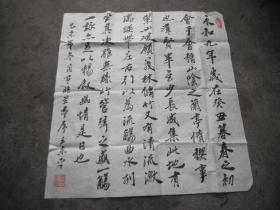 永和九年歲在癸丑暮春之初
會于會稽山陰之蘭亭脩禊事
也羣賢畢至少長咸集此地有
崇山峻領茂林脩竹又有清流激
湍暎帶左右引以為流觴曲水列
坐其次雖無絲竹管弦之盛一觴
一詠亦足以暢敘幽情是日也
乙未年冬月蘭亭序